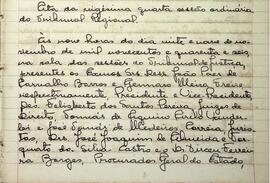 Ata da vigésima quarta sessão ordinária
do Tribunal Regional.
Às nove horas do dia vinte e nove de no-
vembro de mil novecentos e quarenta e seis,
na sala das sessões do Tribunal de Justiça,
presentes os Exmos Srs. Dess. João Paes de
Carvalho Barros e Genaro Freire,
respectivamente, Presidente e Vice Presidente,
Des. Felisberto dos Santos Pereira, Juizes de
Direito, Tomás de Aquino
e José Tomás de Medeiros Correia, Juris-
tas, Drs. José Joaquim de Almeida,
da Silva Castro e o Dr. Dirceu Ferrei-
ra Borges, Procurador Geral do Estado,